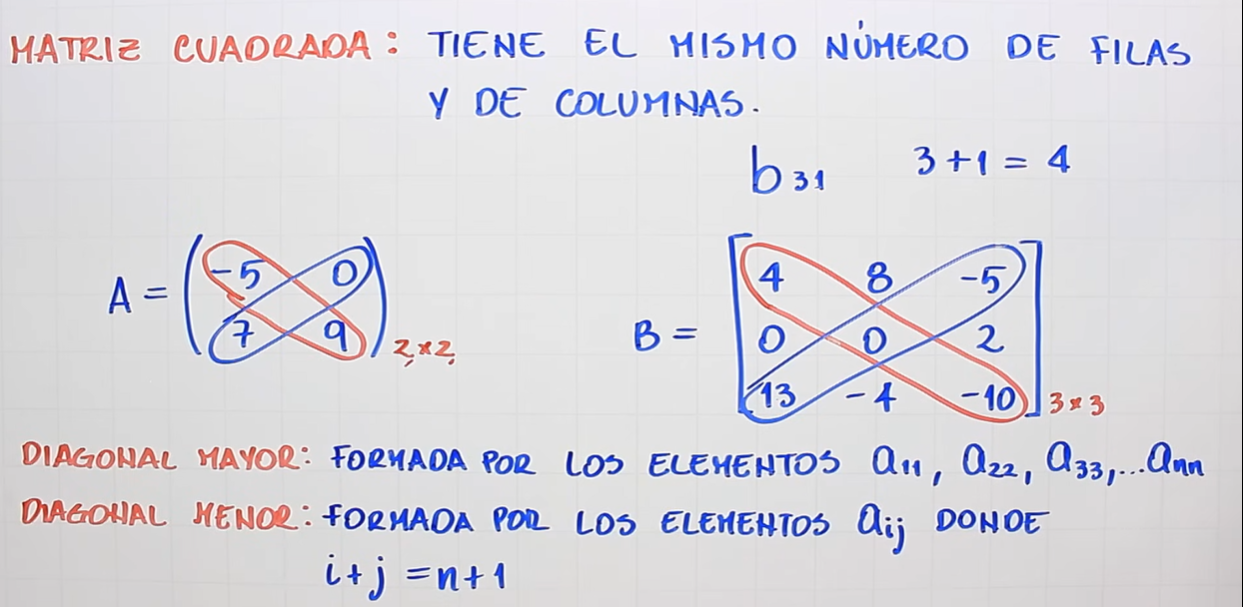 MATRIZ CUADRADA: TIENE EL MISMO NÚMERO DE FILAS
Y DE COLUMNAS.
b31 3+1 = 4
A = ( -5 0
7 9 ) 2x2
B = [ 4 8 -5
0 0 2
13 -4 -10 ] 3x3
DIAGONAL MAYOR: FORMADA POR LOS ELEMENTOS a11, a22, a33,...ann
DIAGONAL MENOR: FORMADA POR LOS ELEMENTOS aij DONDE
i+j = n+1